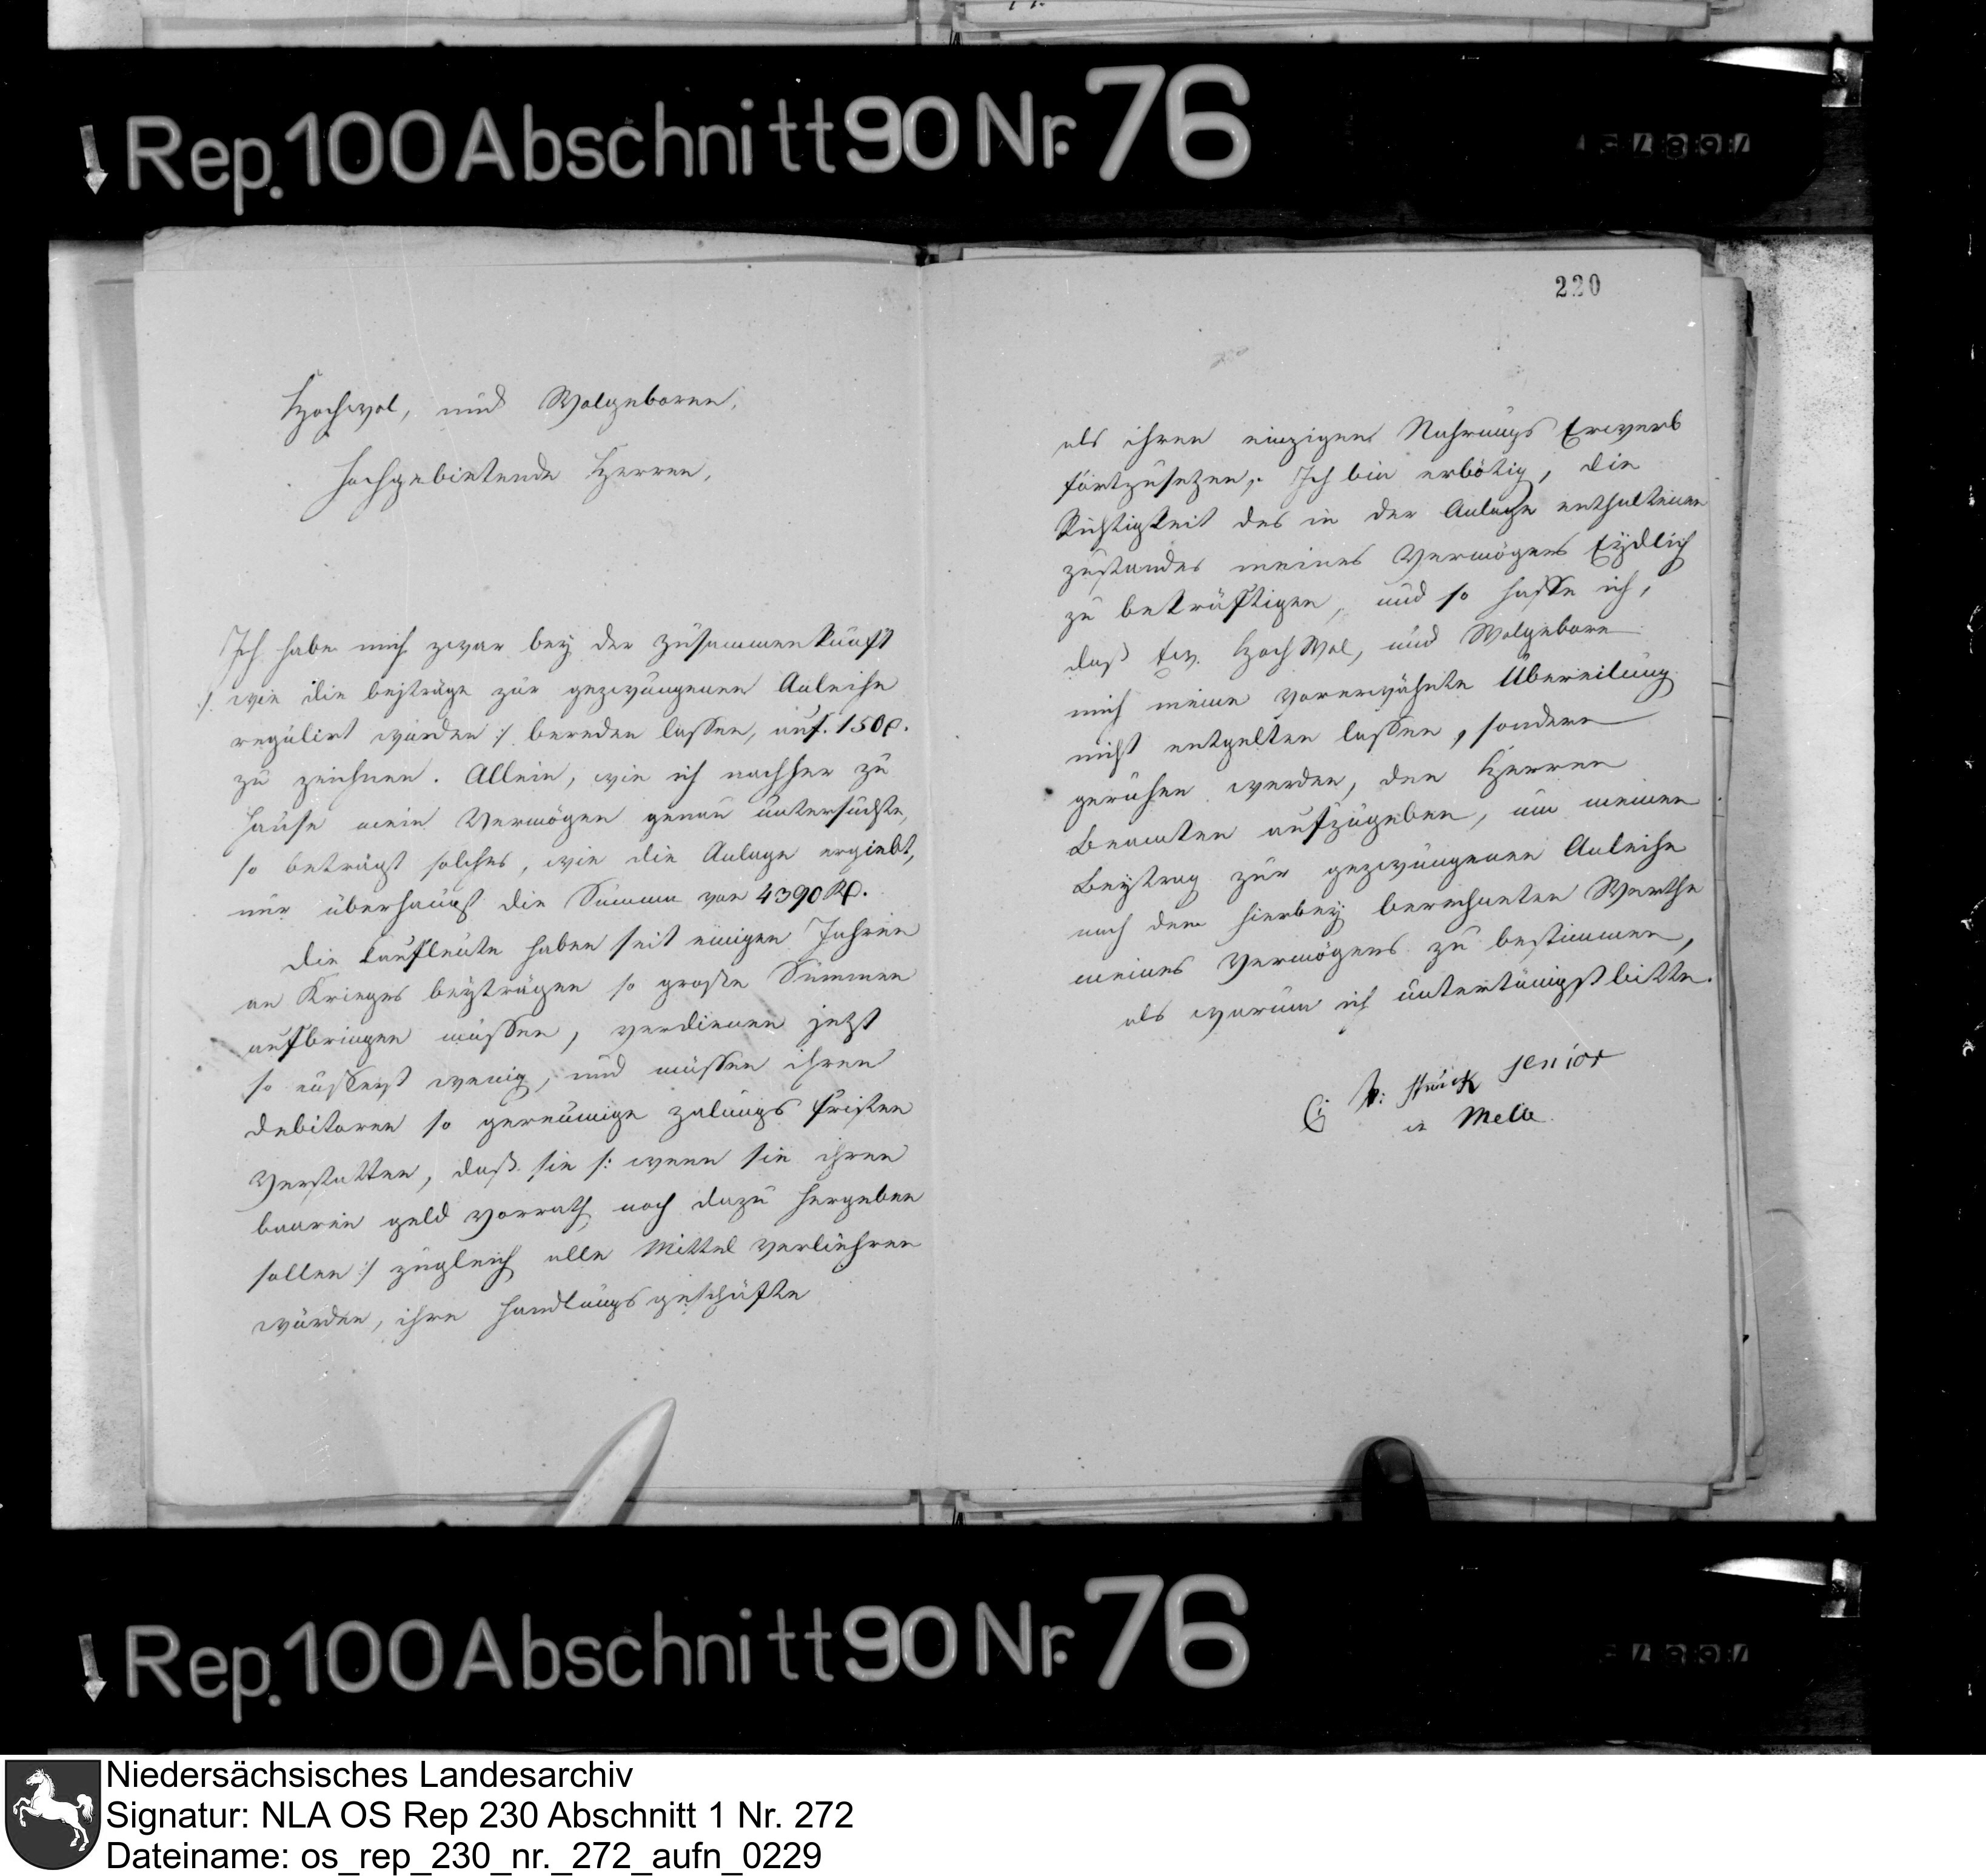 Rep. 100 Abschnitt 90 Nr. 76
220
Hochwol, und Wolgeborne,
hochgebietende Herren,
Ich habe mich zwar bey der Zusammenkunft
/: wie die beyträge zur gezwungenen Anleihe
regulirt wurden :/ bereden lassen, auf 150
zu zeichnen. Allein, wie ich nachher zu
Hause mein Vermögen genau untersuchte,
so beträgt solches, wie die Anlage ergiebt,
nur überhaupt die Summe von 4390
Die Kaufleute haben seit einigen Jahren
an Krieges beyträgen so große Summen
aufbringen müssen, verdienen jetzt
so äußerst wenig, und müssen ihren
Debitoren so geräumige zalungs fristen
Verstatten, daß sie /: wenn sie ihren
baaren geld vorrath noch dazu hergeben
sollen :/ zugleich alle Mittel verliehren
würden, ihre Handlungsgeschäfte
als ihren einzigen Nahrungs Erwerb
fortzusetzen. Ich bin erbötig, die
Richtigkeit des in der Anlage enthaltenen
zustandes meines Vermögens Eydlich
zu bekräftigen, und so hoffe ich,
daß Ew. HochWol, und Wolgeborn
mich meine vorerwähnte Übereilung
nicht entgelten lassen, sondern
geruhen werden, den Herren
Beamten aufzugeben, um meinen
Beytrag zur gezwungenen Anleihe
nach dem hierbey berechneten Werthe
meines Vermögens zu bestimmen,
als warum ich untertänigst bitte.
senior
in Melle
Rep. 100 Abschnitt 90 Nr. 76
Niedersächsisches Landesarchiv
Signatur: NLA OS Rep 230 Abschnitt 1 Nr. 272
Dateiname: os_rep_230_nr._272_aufn_0229